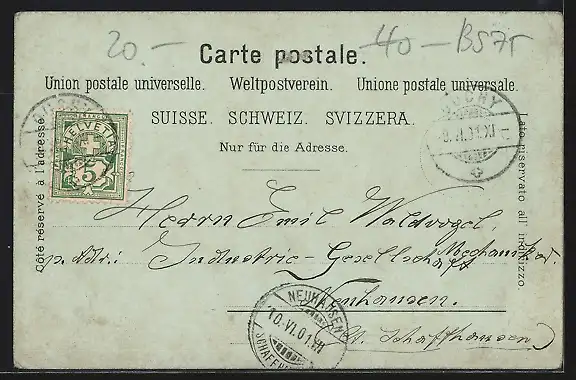 20.- 40 - BS7r
Carte postale.
Union postale universelle. Weltpostverein. Unione postale universale.
SUISSE. SCHWEIZ. SVIZZERA.
Nur für die Adresse.
Côté réservé à l'adresse.
Lato riservato all' indirizzo.
HELVETIA
5
OUCHY
Herrn Emil Waldvogel,
p. Adr: Industrie-Gesellschaft
Neuhausen.
Schaffhausen
NEUHAUSEN
10.VI.01.